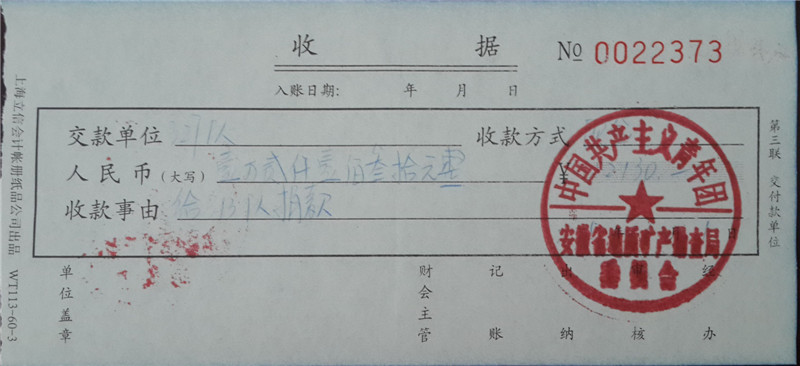 收 据
№ 0022373
入账日期: 年 月 日
交款单位 收款方式
人民币(大写) 壹万贰仟壹佰叁拾元零 ¥ 12130.
收款事由 给 捐款
中国共产主义青年团
安徽省地质矿产勘查局
委员会
单位盖章 财会主管 记账 出纳 审核 经办
第三联 交付款单位
上海立信会计帐册纸品公司出品 WT113-60-3